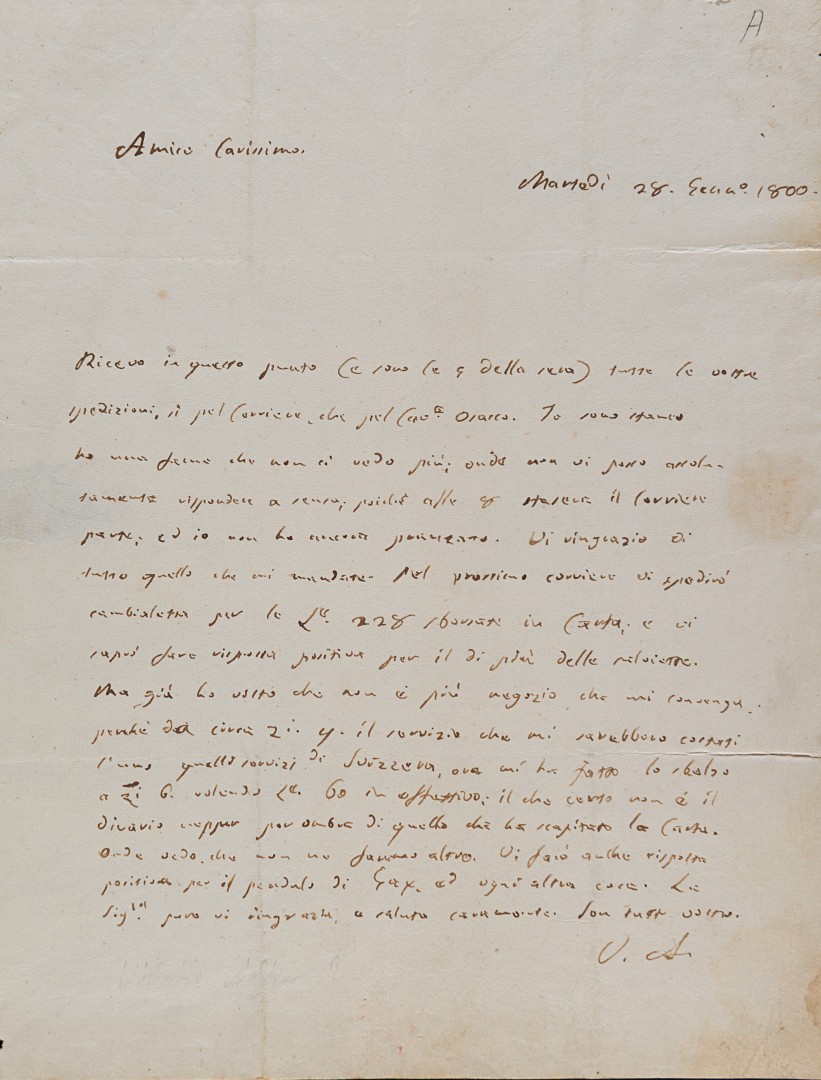 A
Amico Carissimo.
Martedì 28. Genn.º 1800.
Ricevo in questo punto (e sono le 5 della sera) tutte le vostre
spedizioni, sì pel Corriere, che pel Osasco. Io sono stanco
ho una fame che non ci vedo più; onde non vi posso assolu-
tamente rispondere a senso; poiché alle 8 stasera il Corriere
parte; ed io non ho ancora pranzato. Vi ringrazio di
tutto quello che mi mandate. Nel prossimo corriere vi spedirò
cambialetta per le 228 sborsate in Carta; e vi
saprò fare risposta positiva per il di più delle salviette.
Ma già ho visto che non è più negozio che mi convenga,
perché da circa Zi. 4. il servizio che mi sarebbero costati
l'uno quelli servizi di Svizzera, ora mi ha fatto lo sbalzo
a Zi 6. volendo 60 in effettivo; il che certo non è il
divario neppur per ombra di quello che ha scapitato la Carta.
Onde vedo, che non ne faremo altro. Vi farò anche risposta
positiva per il pendulo di Gax, ed ogni altra cosa. La
Sig.ra pure vi ringrazia, e saluta caramente. Son tutto vostro.
V. A.